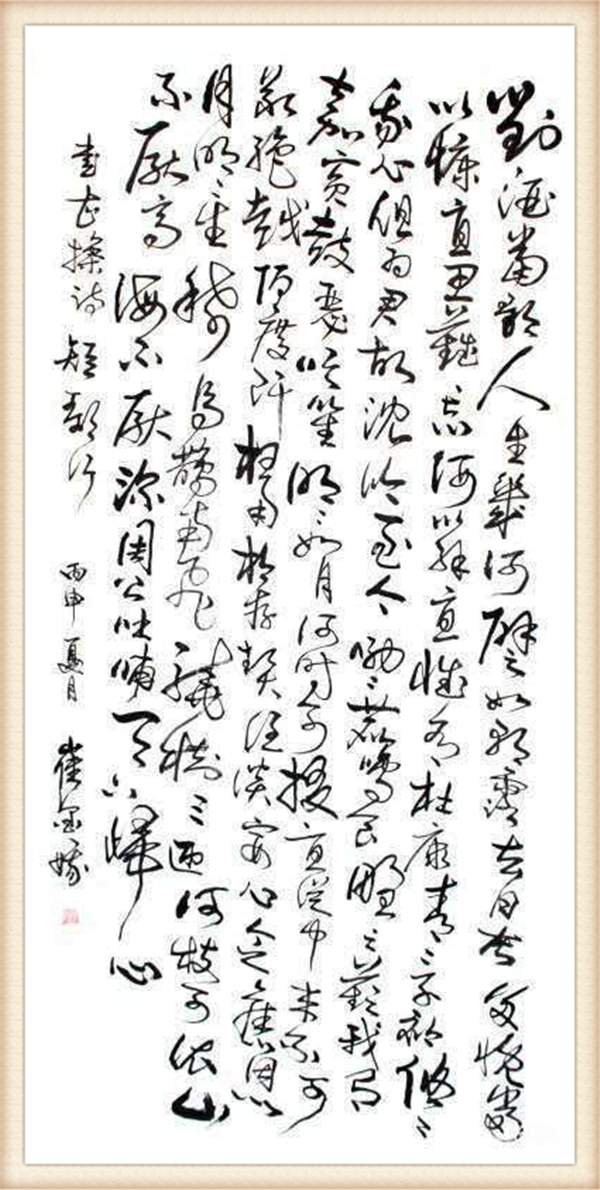 對酒當歌人生幾何譬如朝露去日苦多慨當
以慷憂思難忘何以解憂惟有杜康青々子衿悠々
我心但為君故沈吟至今呦々鹿鳴食野之蘋我有
嘉賓鼓瑟吹笙明々如月何時可掇憂從中來不可
斷絕越陌度阡枉用相存契闊談宴心念舊恩
月明星稀烏鵲南飛繞樹三匝何枝可依山
不厭高海不厭深周公吐哺天下歸心
書曹操詩短歌行 丙申夏月 崔